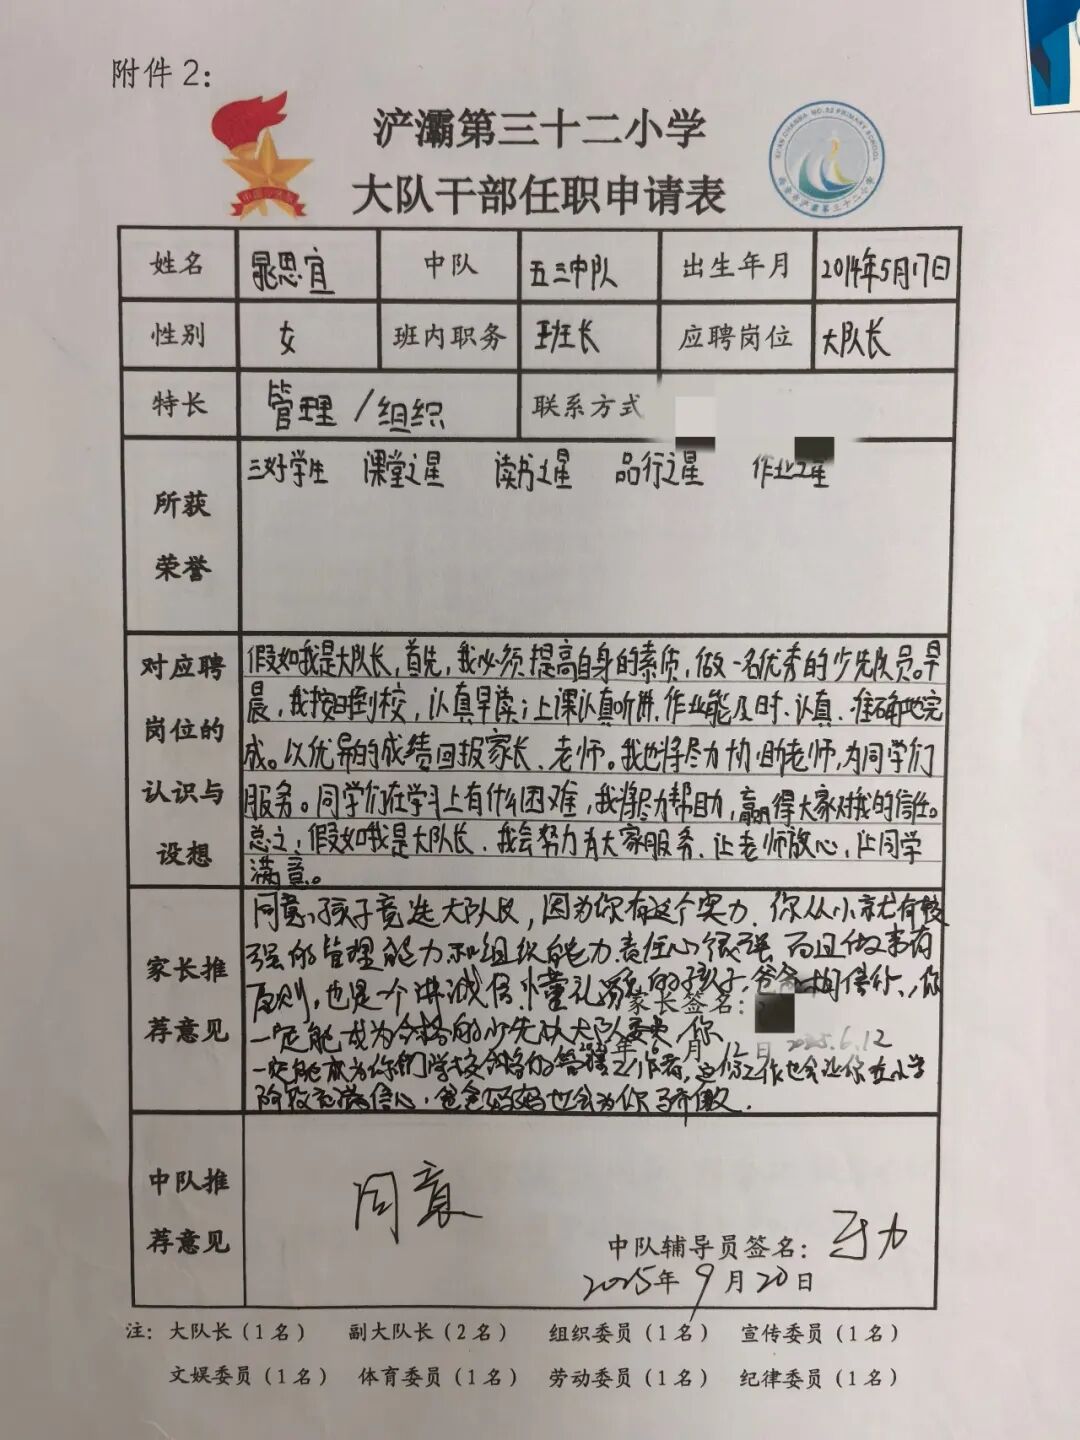 附件2：
浐灞第三十二小学
大队干部任职申请表
姓名 晁思宜 中队 五三中队 出生年月 2014年5月17日
性别 女 班内职务 班长 应聘岗位 大队长
特长 管理/组织 联系方式
所获荣誉 三好学生 课堂之星 读书之星 品行之星 作业之星
对应聘岗位的认识与设想
假如我是大队长，首先，我必须提高自身的素质，做一名优秀的少先队员。早
晨，我按时到校，认真早读；上课认真听讲，作业能及时、认真、准确地完
成。以优异的成绩回报家长、老师。我也将尽力协助老师，为同学们
服务。同学们在学习上有什么困难，我将尽力帮助，赢得大家对我的信任。
总之，假如我是大队长，我会努力为大家服务，让老师放心，让同学
满意。
家长推荐意见
同意孩子竞选大队长，因为你有这个实力，你从小就有较
强的管理能力和组织能力，责任心很强，而且做事有
原则，也是一个讲诚信、懂礼貌的孩子，爸爸相信你，你
家长签名：
一定能成为合格的少先队大队委员，你
年 月 12日 2025.6.12
一定能成为你们学校合格的管理工作者，这份工作也会让你在小学
阶段充满信心，爸爸妈妈也会为你骄傲．
中队推荐意见
同意
中队辅导员签名：
2025年9月20日
注：大队长（1名） 副大队长（2名） 组织委员（1名） 宣传委员（1名）
文娱委员（1名） 体育委员（1名） 劳动委员（1名） 纪律委员（1名）